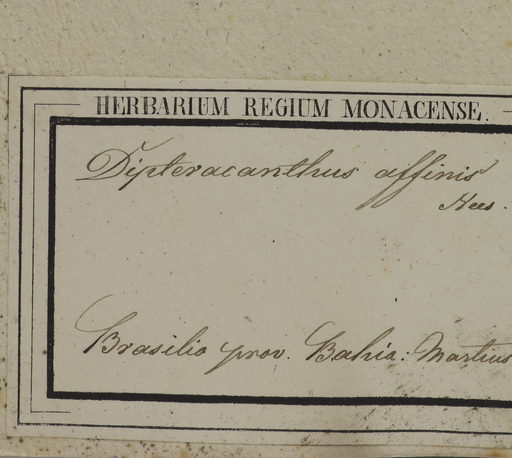 HERBARIUM REGIUM MONACENSE.
Dipteracanthus affinis
Nees.
Brasilia prov. Bahia: Martius